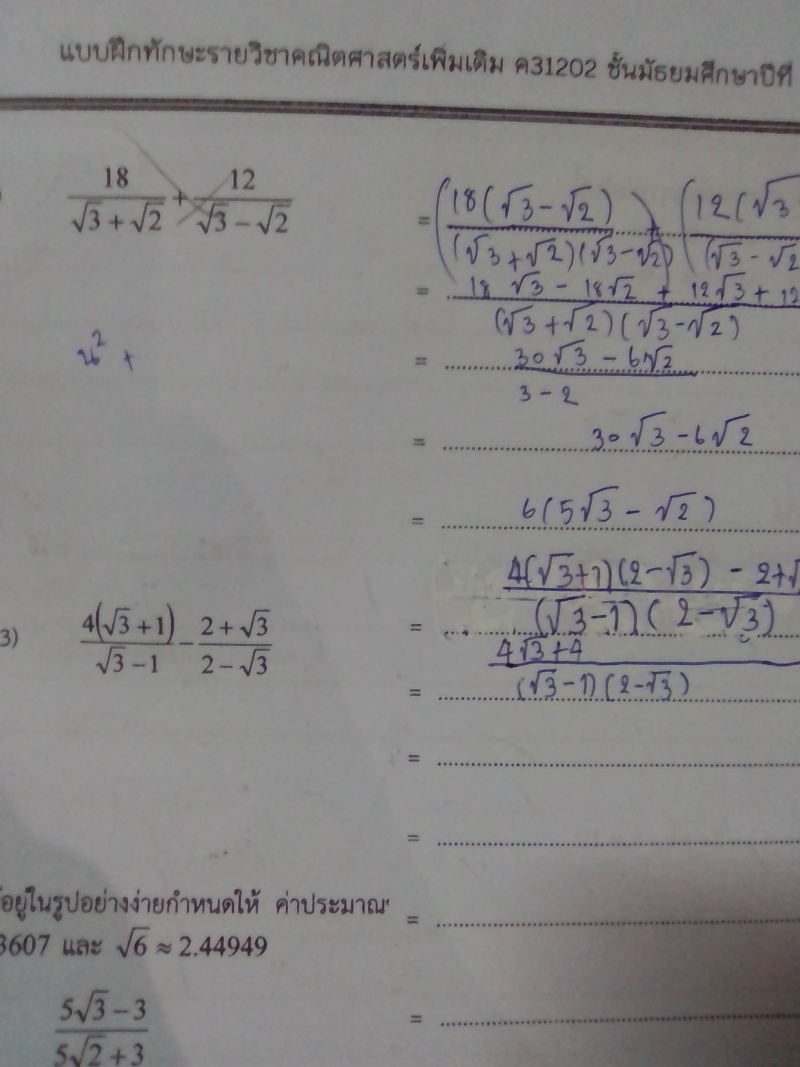 แบบฝึกทักษะรายวิชาคณิตศาสตร์เพิ่มเติม ค31202 ชั้นมัธยมศึกษาปีที่
18/(√3 + √2) + 12/(√3 − √2)
= (18(√3 − √2))/((√3 + √2)(√3 − √2)) + (12(√3)/((√3 − √2
= (18√3 − 18√2 + 12√3 + 12)/((√3 + √2)(√3 − √2))
= (30√3 − 6√2)/(3 − 2)
= 30√3 − 6√2
= 6(5√3 − √2)
3) 4(√3 + 1)/(√3 − 1) − (2 + √3)/(2 − √3)
= (4(√3+1)(2−√3) − 2+√)/((√3−1)(2−√3))
= (4√3+4)/((√3−1)(2−√3))
=
=
อยู่ในรูปอย่างง่ายกำหนดให้ ค่าประมาณ
=
3607 และ √6 ≈ 2.44949
(5√3 − 3)/(5√2 + 3)
=